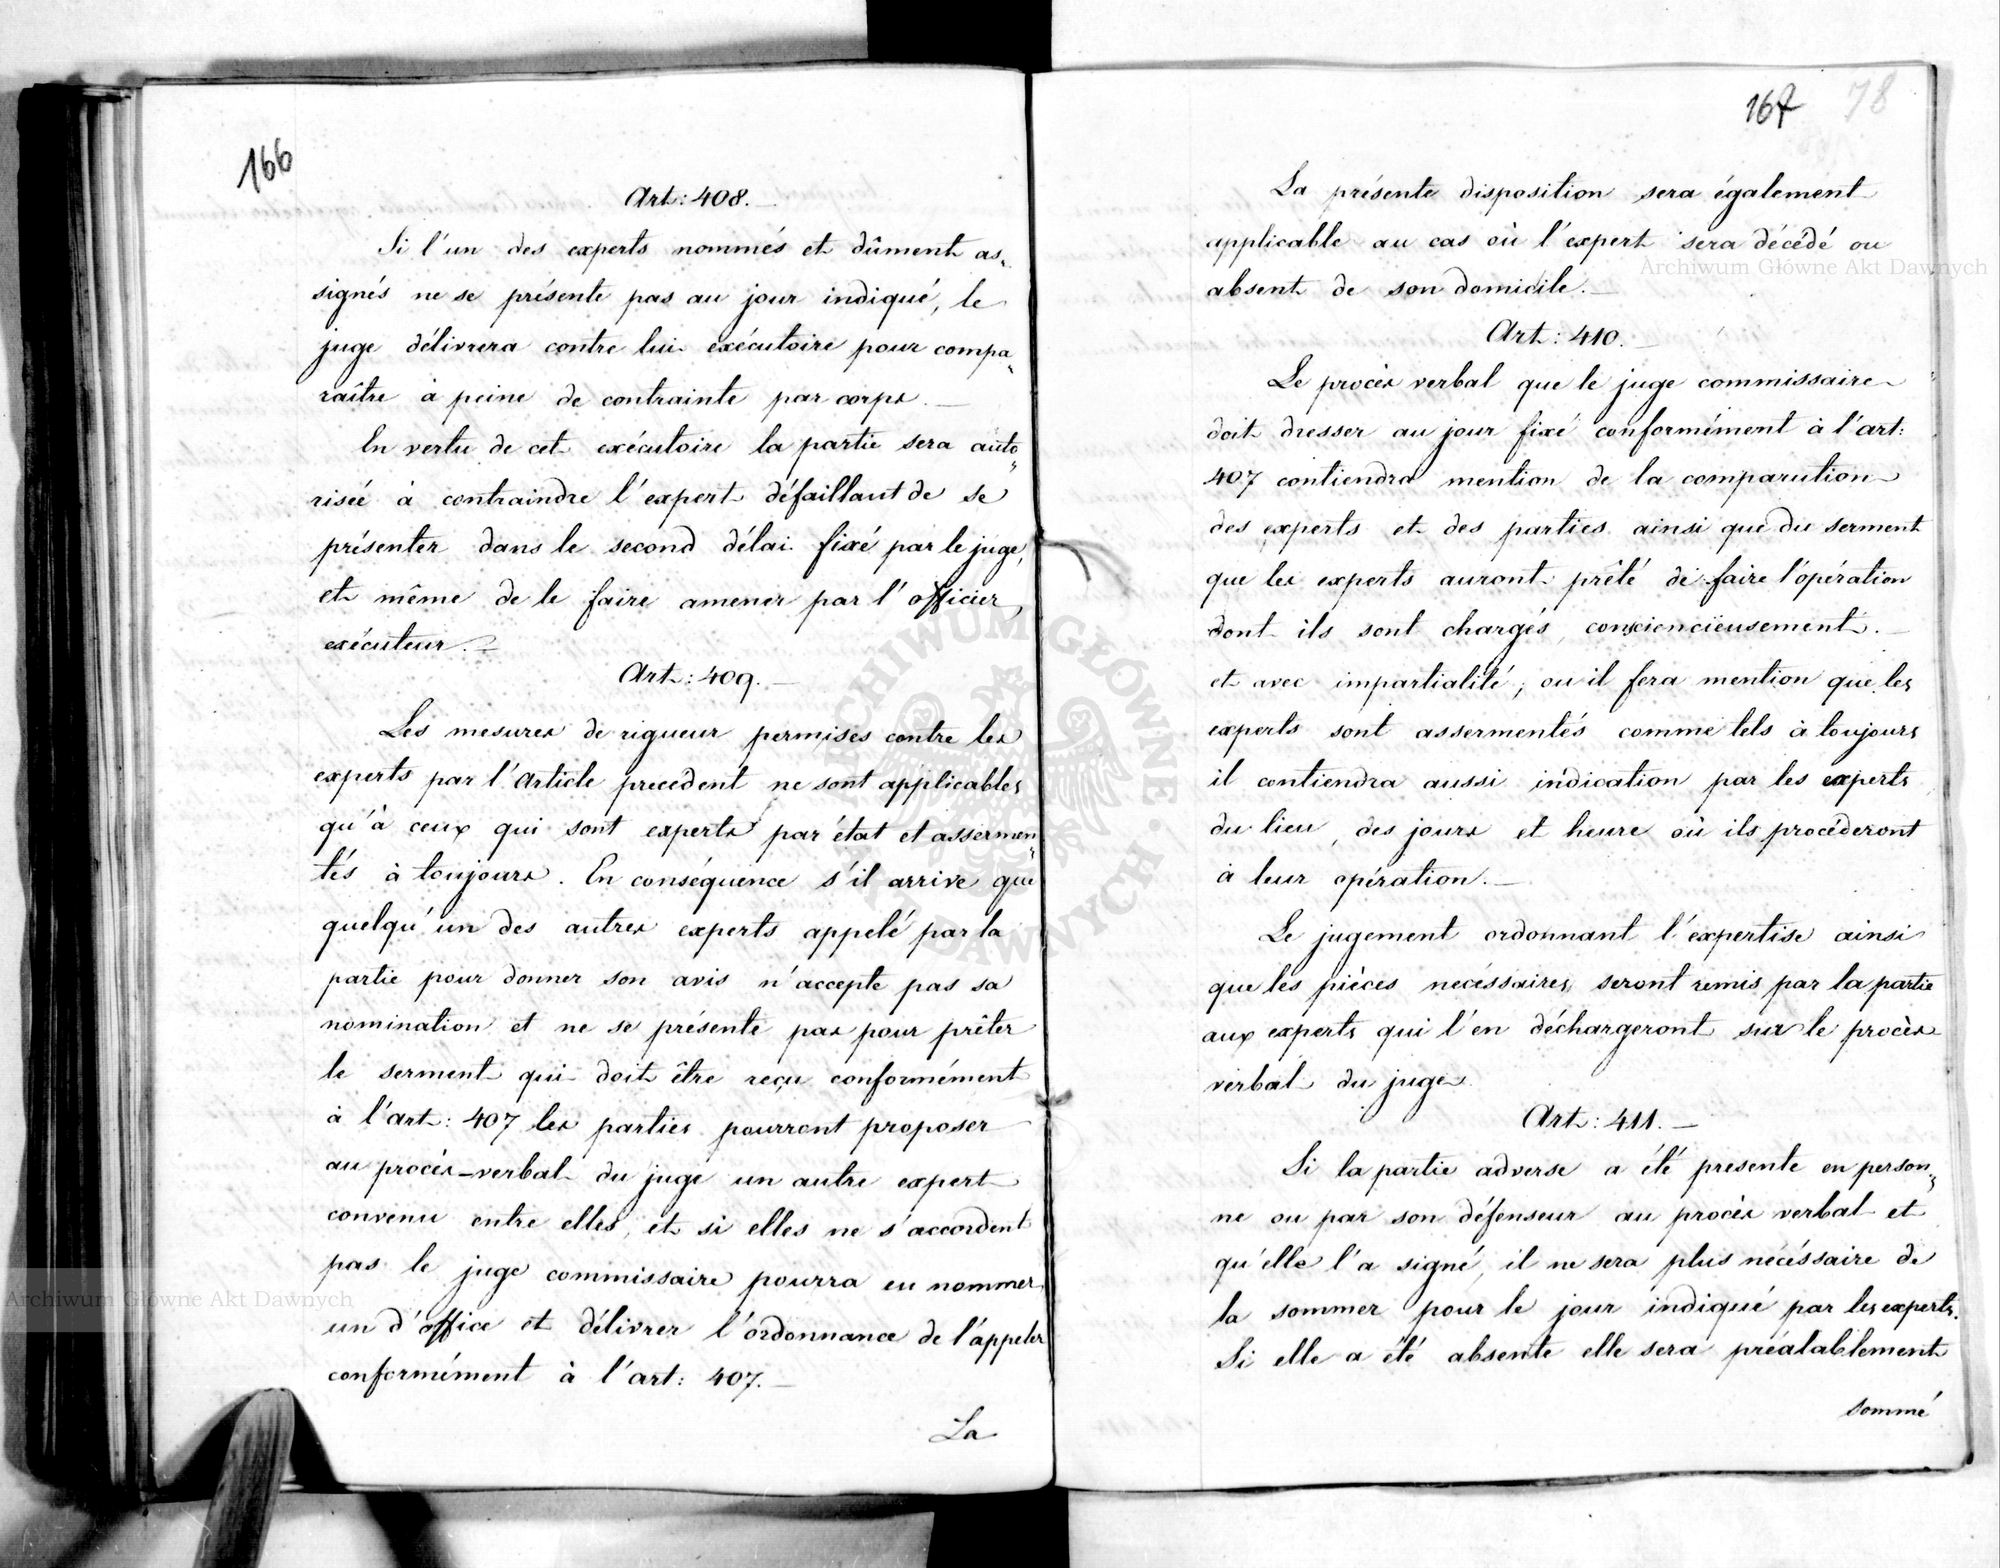 166
Art: 408.
Si l'un des experts nommés et dûment as„
signés ne se présente pas au jour indiqué, le
juge délivrera contre lui exécutoire pour compa„
raître à peine de contrainte par corps.
En vertu de cet exécutoire la partie sera auto„
risée à contraindre l'expert défaillant de se
présenter dans le second délai fixé par le juge,
et même de le faire amener par l'officier
exécuteur.
Art: 409.
Les mesures de rigueur permises contre les
experts par l'Article precedent ne sont applicables
qu'à ceux qui sont experts par état et assermen„
tés à toujours. En conséquence s'il arrive que
quelqu'un des autres experts appelé par la
partie pour donner son avis n'accepte pas sa
nomination et ne se présente pas pour prêter
le serment qui doit être reçu conformément
à l'art: 407 les parties pourront proposer
au procès-verbal du juge un autre expert
convenu entre elles, et si elles ne s'accordent
pas le juge commissaire pourra en nommer
un d'office et délivrer l'ordonnance de l'appeler
conformément à l'art: 407.
La
167 78
La présente disposition sera également
applicable au cas où l'expert sera décédé ou
absent de son domicile.
Art: 410.
Le procès verbal que le juge commissaire
doit dresser au jour fixé conformément à l'art:
407 contiendra mention de la comparution
des experts et des parties ainsi que du serment
que les experts auront prêté de faire l'opération
dont ils sont chargés, consciencieusement.
et avec impartialité, ou il fera mention que les
experts sont assermentés comme tels à toujours
il contiendra aussi indication par les experts
du lieu, des jours et heure où ils procéderont
à leur opération.
Le jugement ordonnant l'expertise ainsi
que les pièces nécéssaires seront remis par la partie
aux experts qui l'en déchargeront sur le procès
verbal du juge.
Art: 411.
Si la partie adverse a été presente en person„
ne ou par son défenseur au procès verbal et
qu'elle l'a signé, il ne sera plus nécéssaire de
la sommer pour le jour indiqué par les experts.
Si elle a été absente elle sera préalablement
sommé
Archiwum Główne Akt Dawnych
Archiwum Główne Akt Dawnych
ARCHIWUM GŁÓWNE · AKT DAWNYCH ·